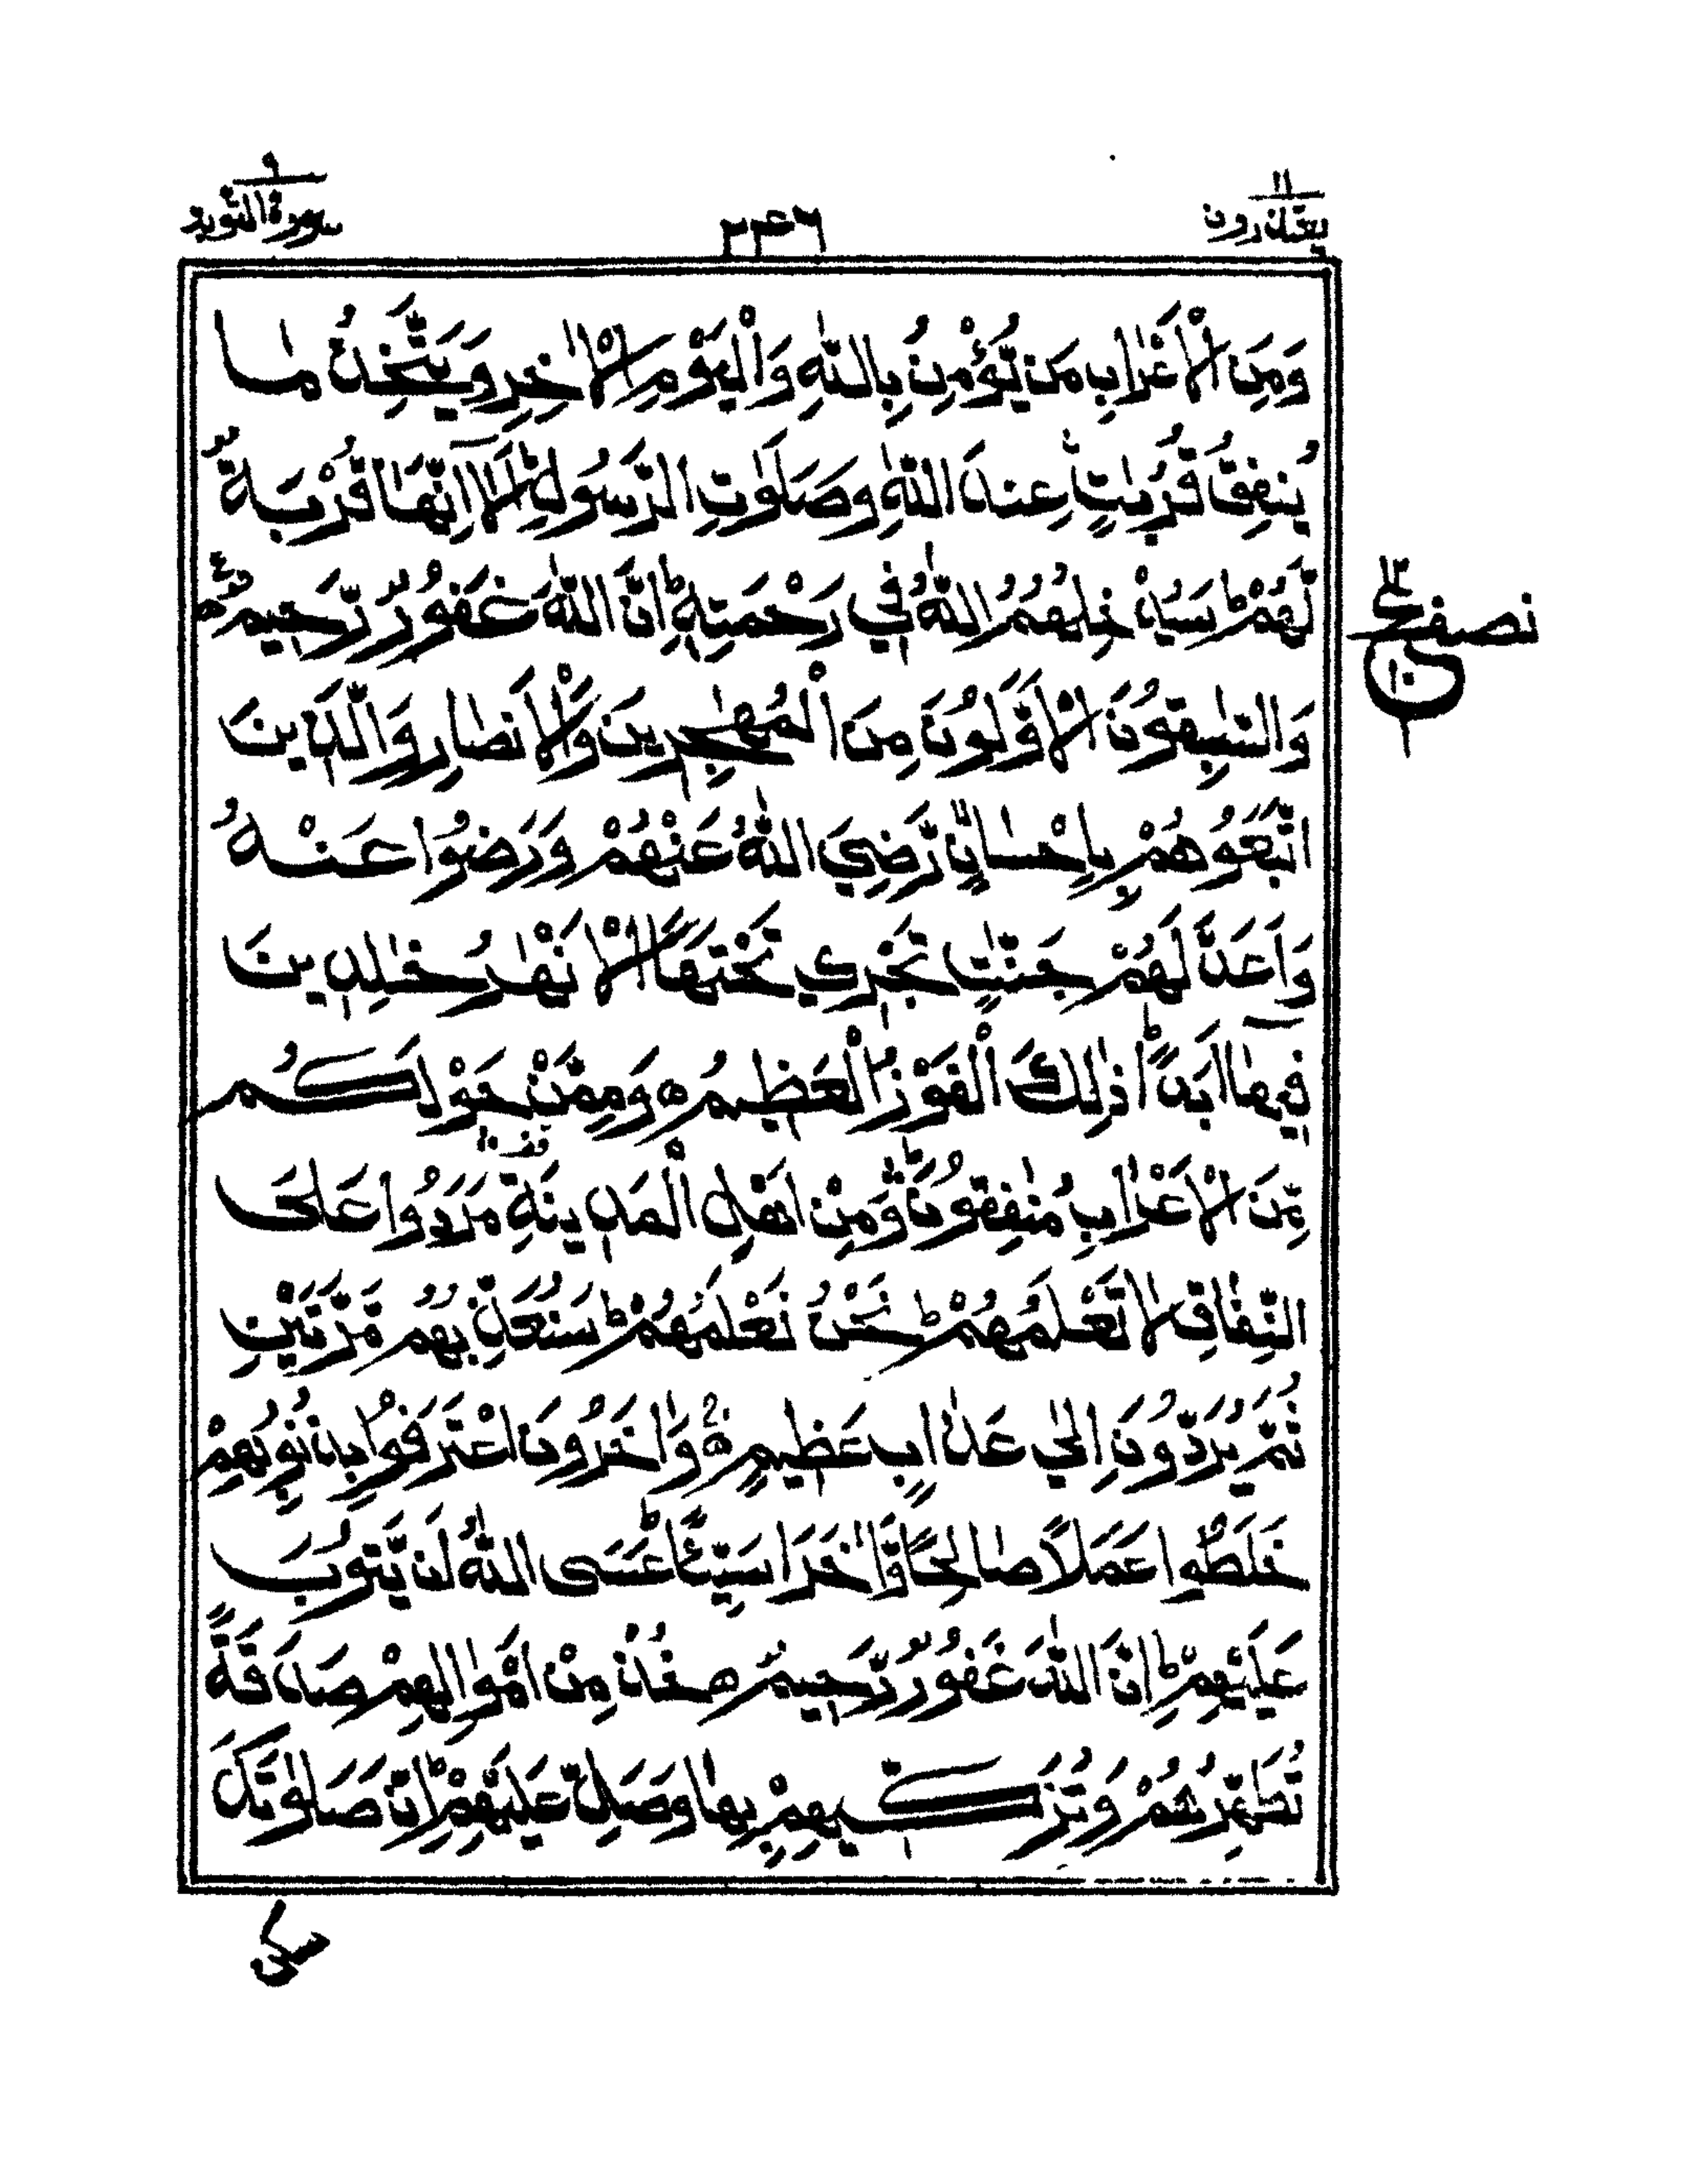 ۱۱
يعتذرون
۲۴۶
۹
سورة التوبة
وَمِنَ الْأَعْرَابِ مَن يُّؤْمِنُ بِاللّٰهِ وَالْيَوْمِ الْاٰخِرِ وَيَتَّخِذُ مَا
يُنفِقُ قُرُبٰتٍ عِندَ اللّٰهِ وَصَلَوٰتِ الرَّسُولِ ؕ اَلَاۤ اِنَّهَا قُرْبَةٌ
لَّهُمْ ؕ سَيُدْخِلُهُمُ اللّٰهُ فِي رَحْمَتِهٖ ؕ اِنَّ اللّٰهَ غَفُورٌ رَّحِيمٌ ه ع
نصف
وَالسّٰبِقُونَ الْاَوَّلُونَ مِنَ الْمُهٰجِرِينَ وَالْاَنصَارِ وَالَّذِينَ
اتَّبَعُوهُمْ بِاِحْسَانٍ ۙ رَّضِيَ اللّٰهُ عَنْهُمْ وَرَضُوا عَنْهُ
وَاَعَدَّ لَهُمْ جَنّٰتٍ تَجْرِي تَحْتَهَا الْاَنْهٰرُ خٰلِدِينَ
فِيهَاۤ اَبَدًا ؕ ذٰلِكَ الْفَوْزُ الْعَظِيمُ ه وَمِمَّنْ حَوْلَكُم
مِّنَ الْاَعْرَابِ مُنٰفِقُونَ ؕ وَمِنْ اَهْلِ الْمَدِينَةِ مَرَدُوا عَلَى
النِّفَاقِ لَا تَعْلَمُهُمْ ؕ نَحْنُ نَعْلَمُهُمْ ؕ سَنُعَذِّبُهُم مَّرَّتَيْنِ
ثُمَّ يُرَدُّونَ اِلٰي عَذَابٍ عَظِيمٍ ه وَاٰخَرُونَ اعْتَرَفُوا بِذُنُوبِهِمْ
خَلَطُوا عَمَلًا صَالِحًا وَّاٰخَرَ سَيِّئًا ؕ عَسَى اللّٰهُ اَن يَّتُوبَ
عَلَيْهِمْ ؕ اِنَّ اللّٰهَ غَفُورٌ رَّحِيمٌ ه خُذْ مِنْ اَمْوَالِهِمْ صَدَقَةً
تُطَهِّرُهُمْ وَتُزَكِّيهِمْ بِهَا وَصَلِّ عَلَيْهِمْ ؕ اِنَّ صَلَوٰتَكَ
سكن